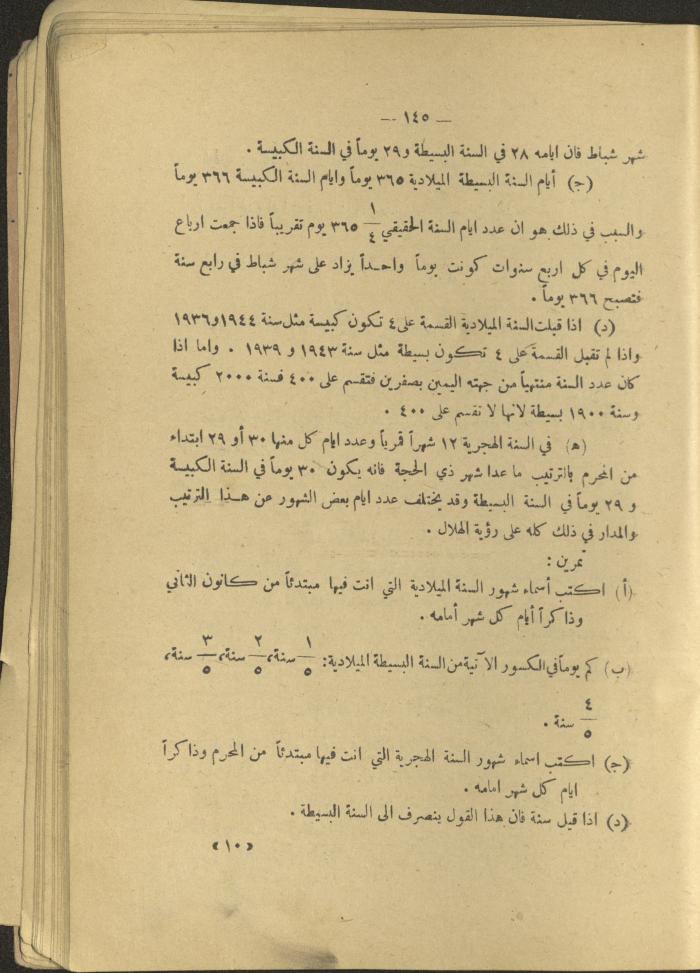 — ١٤٥ —
شهر شباط فان ايامه ٢٨ في السنة البسيطة و ٢٩ يوماً في السنة الكبيسة .
(ج) أيام السنة البسيطة الميلادية ٣٦٥ يوماً وايام السنة الكبيسة ٣٦٦ يوماً
والسبب في ذلك هو ان عدد ايام السنة الحقيقي ١/٤ ٣٦٥ يوم تقريباً فاذا جمعت ارباع
اليوم في كل اربع سنوات كونت يوماً واحداً يزاد على شهر شباط في رابع سنة
فتصبح ٣٦٦ يوماً .
(د) اذا قبلت السنة الميلادية القسمة على ٤ تكون كبيسة مثل سنة ١٩٤٤ و ١٩٣٦
واذا لم تقبل القسمة على ٤ تكون بسيطة مثل سنة ١٩٤٣ و ١٩٣٩ . واما اذا
كان عدد السنة منتهياً من جهته اليمين بصفرين فتقسم على ٤٠٠ فسنة ٢٠٠٠ كبيسة
وسنة ١٩٠٠ بسيطة لانها لا تقسم على ٤٠٠ .
(ه) في السنة الهجرية ١٢ شهراً قمرياً وعدد ايام كل منها ٣٠ أو ٢٩ ابتداء
من المحرم بالترتيب ما عدا شهر ذي الحجة فانه يكون ٣٠ يوماً في السنة الكبيسة
و ٢٩ يوماً في السنة البسيطة وقد يختلف عدد ايام بعض الشهور عن هذا الترتيب
والمدار في ذلك كله على رؤية الهلال .
تمرين :
(أ) اكتب أسماء شهور السنة الميلادية التي انت فيها مبتدئاً من كانون الثاني
وذاكراً أيام كل شهر أمامه .
(ب) كم يوماً في الكسور الآتية من السنة البسيطة الميلادية : ١/٥ سنة ، ٢/٥ سنة ، ٣/٥ سنة ،
٤/٥ سنة .
(ج) اكتب اسماء شهور السنة الهجرية التي انت فيها مبتدئاً من المحرم وذاكراً
ايام كل شهر امامه .
(د) اذا قيل سنة فان هذا القول ينصرف الى السنة البسيطة .
«١٠»